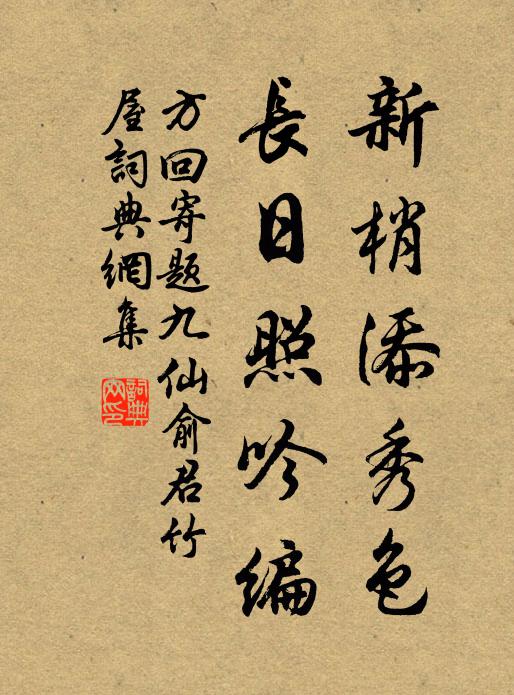 新梢添秀色
長日照吟編
方回寄题九仙俞君竹
屋詞典網集
詞典網印